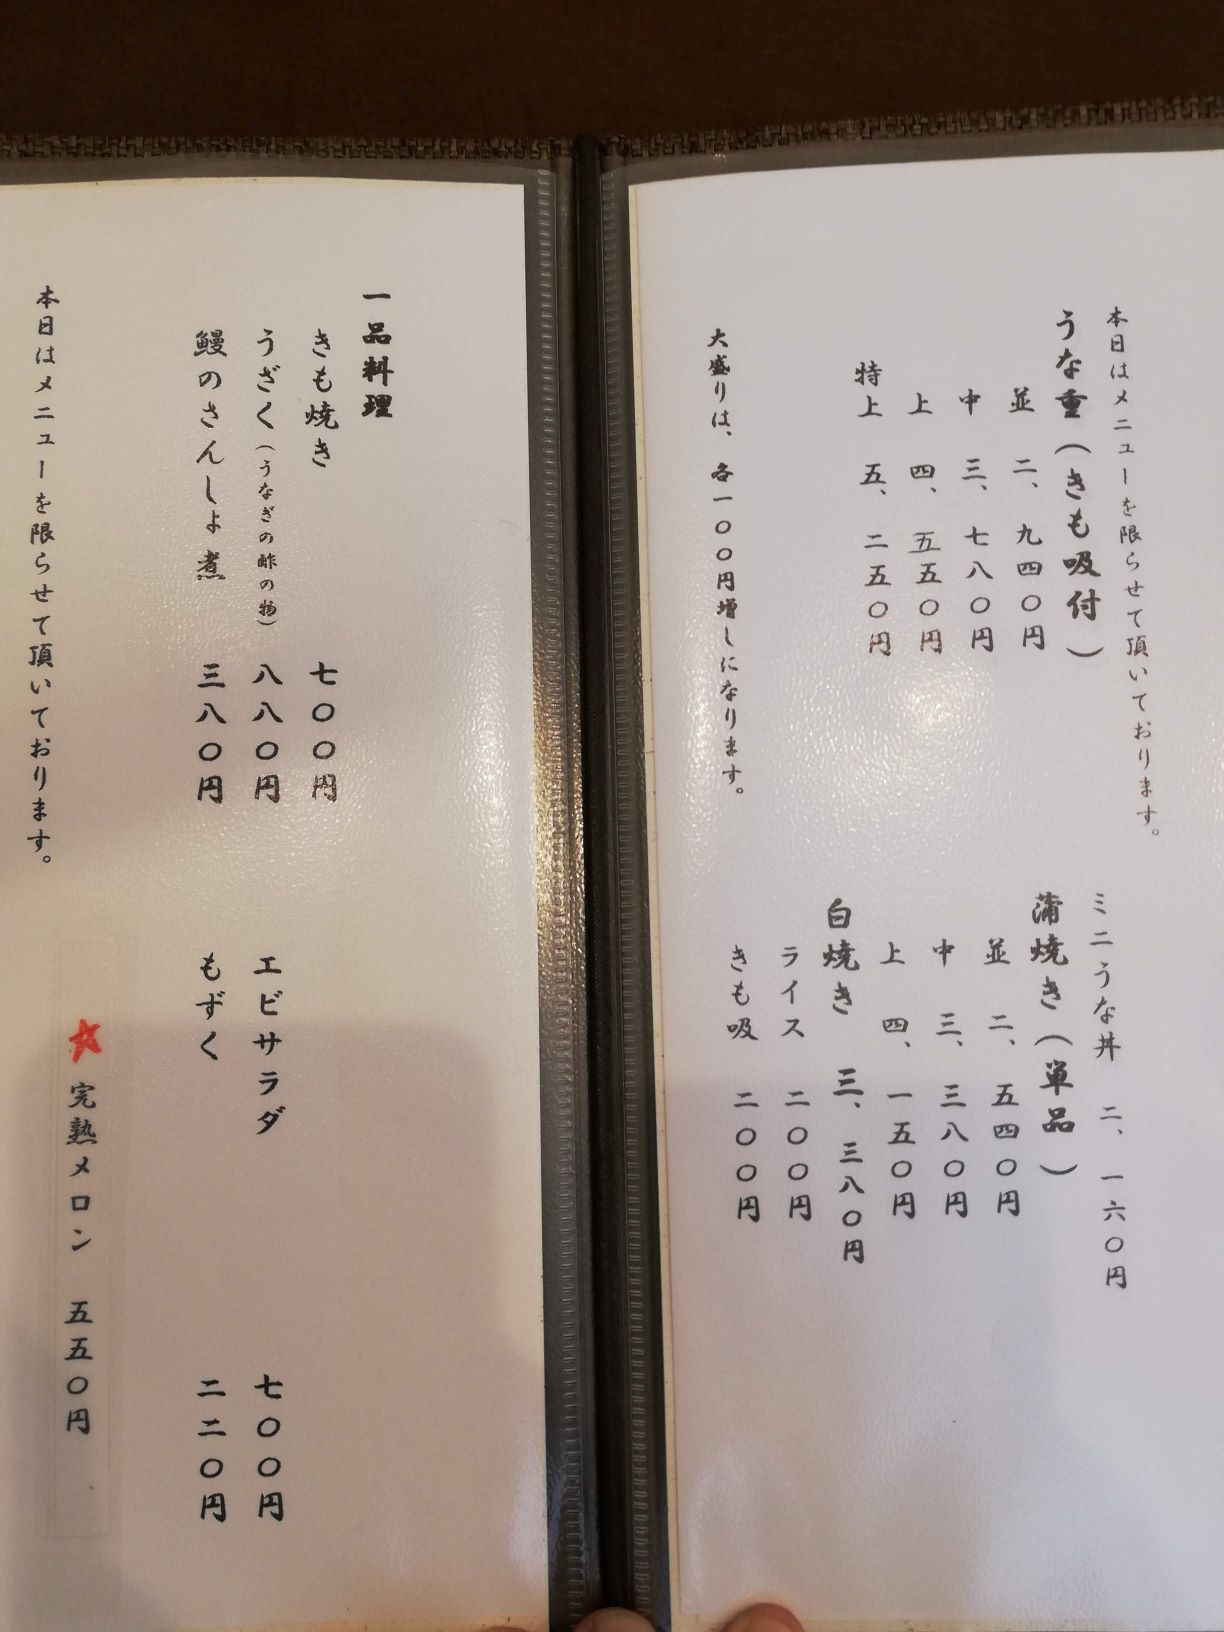 本日はメニューを限らせて頂いております。
うな重（きも吸付）
並 二、九四〇円
中 三、七八〇円
上 四、五五〇円
特上 五、二五〇円
大盛りは、各一〇〇円増しになります。
ミニうな丼 二、一六〇円
蒲焼き（単品）
並 二、五四〇円
中 三、三八〇円
上 四、一五〇円
白焼き 三、三八〇円
ライス 二〇〇円
きも吸 二〇〇円
一品料理
きも焼き 七〇〇円
うざく（うなぎの酢の物） 八八〇円
鰻のさんしょ煮 三八〇円
エビサラダ 七〇〇円
もずく 二二〇円
本日はメニューを限らせて頂いております。
☆ 完熟メロン 五五〇円